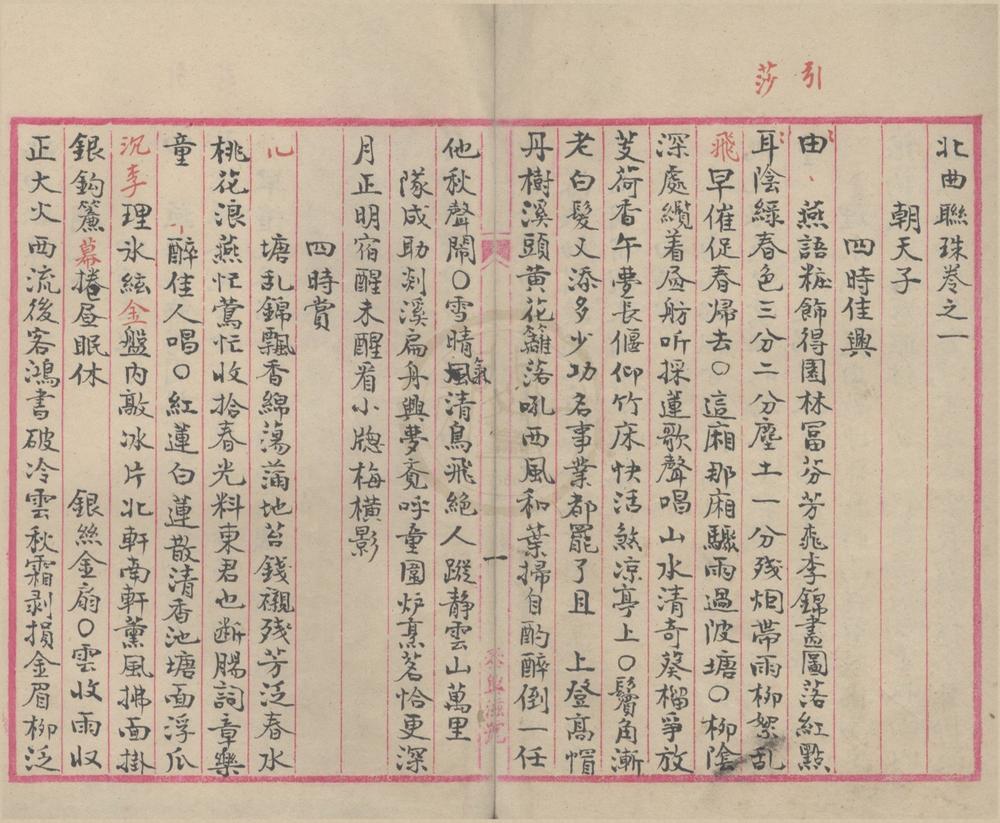 引
莎
北曲聯珠卷之一
朝天子
四時佳興
由 燕語粧飾得園林冨芬芳飛李錦畵圖落紅點
耳陰綠春色三分二分塵土一分残烟帶雨柳絮乱
飛早催促春㷌去〇這廂那廂驟雨過陂塘〇柳陰
深處纜着昼舫听採蓮歌聲唱山水清奇葵榴爭放
芰荷香午夢長偃仰竹床快活煞凉亭上〇鬢角漸
老白髮又添多少功名事業都罷了且 上登高帽
丹樹溪頭黄花籬落吼西風和葉掃自酌醉倒一任
他秋聲鬧〇雪晴風氣清鳥飛絕人蹤静雲山萬里
隊成助剡溪扁舟興夢竟呼童圍炉烹茗恰更深
月正明宿醒未醒看小牕梅橫影
四時賞
儿 塘乱錦飄香綿蕩蒲地苔錢襯残芳泛春水
桃花浪燕忙鶯忙收拾春光料東君也断腸詞章樂
童 醉佳人唱〇紅蓮白蓮散清香池塘面浮瓜
沉李理氷絃金盤内敲冰片北軒南軒薰風拂面掛
銀鈎簾幕捲昼眠休 銀絲金扇〇雲收雨収
正大火西流後客鴻書破冷雲秋霜剥損金眉柳泛
一